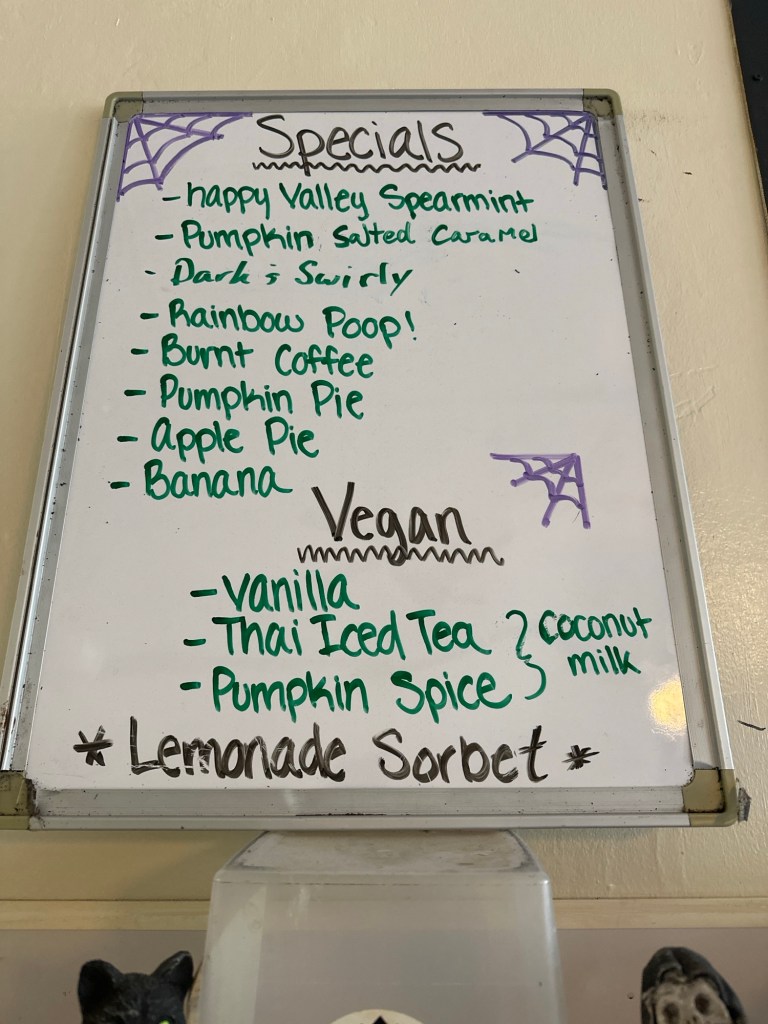 Specials
- happy Valley Spearmint
- Pumpkin Salted Caramel
- Dark & Swirly
- Rainbow Poop!
- Burnt Coffee
- Pumpkin Pie
- Apple Pie
- Banana
Vegan
- Vanilla
- Thai Iced Tea } coconut
- Pumpkin Spice } milk
* Lemonade Sorbet *